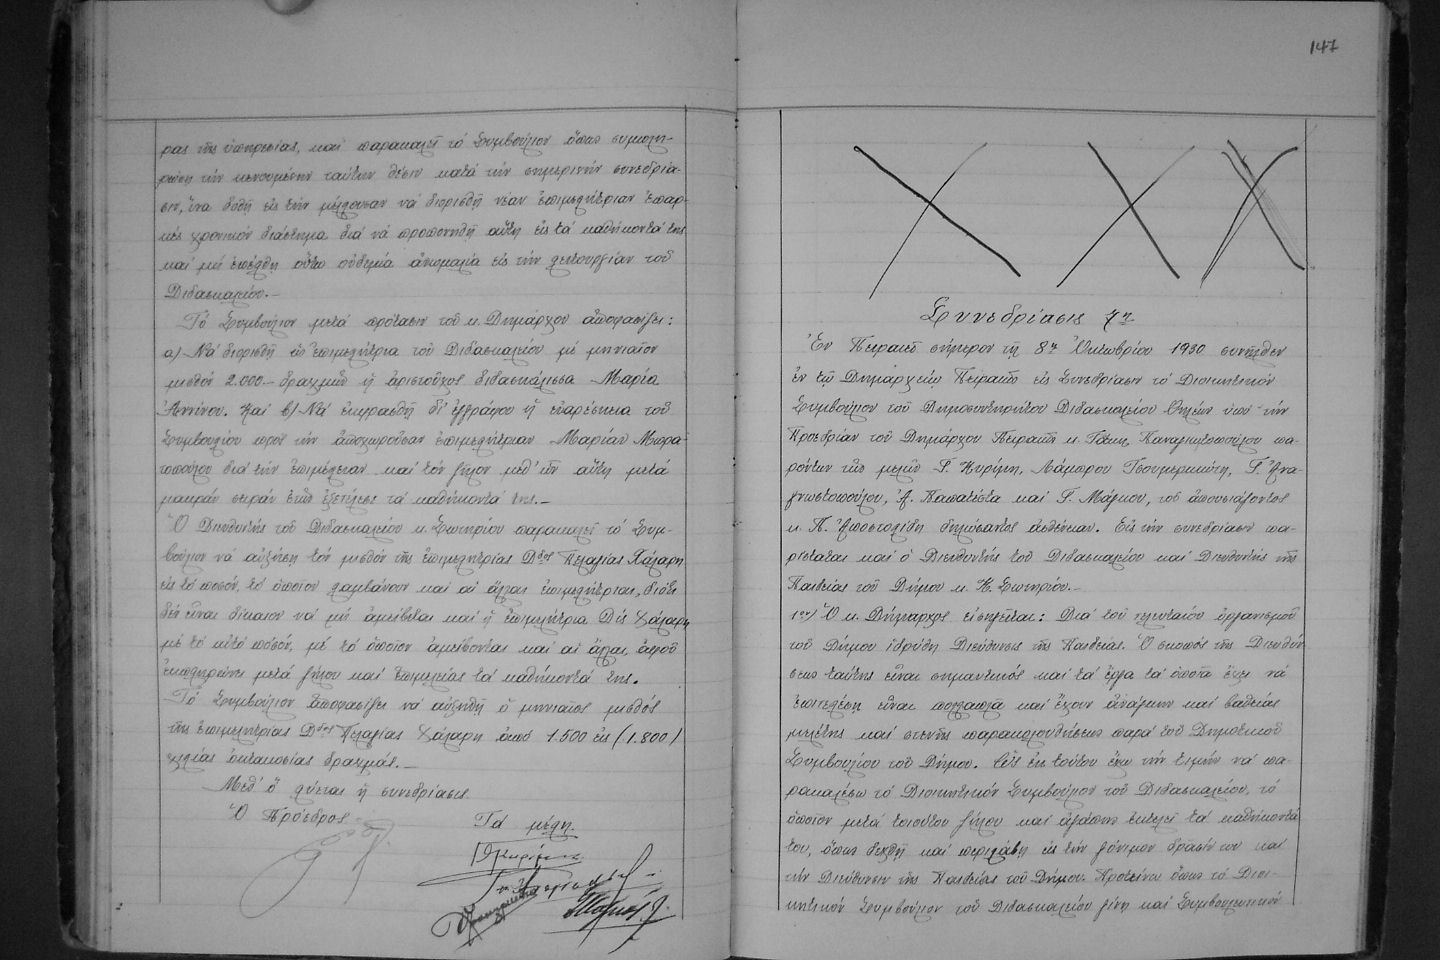 ρας τῆς ὑπηρεσίας, καί παρακαλεῖ τό Συμβούλιον ὅπως συμπλη-
ρώσῃ τήν κενουμένην ταύτην θέσιν κατά τήν σημερινήν συνεδρία-
σιν, ἵνα δοθῇ εἰς τήν μέλλουσαν νά διορισθῇ νέαν ἐπιμελήτριαν ἐπαρ-
κές χρονικόν διάστημα διά νά προπονηθῇ αὕτη εἰς τά καθήκοντά της
καί μή ἐπέλθῃ οὕτω οὐδεμία ἀνωμαλία εἰς τήν λειτουργίαν τοῦ
Διδασκαλείου.-
Τό Συμβούλιον μετά πρότασιν τοῦ κ. Δημάρχου ἀποφασίζει:
α) Νά διορισθῇ ὡς ἐπιμελήτρια τοῦ Διδασκαλείου μέ μηνιαῖον
μισθόν 2.000.- δραχμῶν ἡ ἀριστοῦχος διδασκάλισσα Μαρία
Ἀννίνου. Καί β) Νά ἐκφρασθῇ δι' ἐγγράφου ἡ εὐαρέσκεια τοῦ
Συμβουλίου πρός τήν ἀποχωροῦσαν ἐπιμελήτριαν Μαρίαν Μωρα-
ποπούλου διά τήν ἐπιμέλειαν καί τόν ζῆλον μεθ' ὧν αὕτη μετά
μακράν σειράν ἐτῶν ἐξετέλεσε τά καθήκοντά της.-
Ὁ Διευθυντής τοῦ Διδασκαλείου κ. Σωτηρίου παρακαλεῖ τό Συμ-
βούλιον νά αὐξήσῃ τόν μισθόν τῆς ἐπιμελητρίας Δδος Πελαγίας Χάλαρη
εἰς τό ποσόν, τό ὁποῖον λαμβάνουν καί αἱ ἄλλαι ἐπιμελήτριαι, διότι
δέν εἶναι δίκαιον νά μή ἀμείβεται καί ἡ ἐπιμελήτρια Δίς Χάλαρη
μέ τό αὐτό ποσόν, μέ τό ὁποῖον ἀμείβονται καί αἱ ἄλλαι, ἀφοῦ
ἐκπληρώνει μετά ζήλου καί ἐπιμελείας τά καθήκοντά της.
Τό Συμβούλιον ἀποφασίζει νά αὐξηθῇ ὁ μηνιαῖος μισθός
τῆς ἐπιμελητρίας Δδος Πελαγίας Χάλαρη ἀπό 1.500 εἰς (1.800)
χιλίας ὀκτακοσίας δραχμάς.-
Μεθ' ὅ λύεται ἡ συνεδρίασις
Ὁ Πρόεδρος
Τά μέλη.
147
Συνεδρίασις 7η
Ἐν Πειραιεῖ σήμερον τῇ 8ῃ Ὀκτωβρίου 1930 συνῆλθεν
ἐν τῷ Δημαρχείῳ Πειραιῶς εἰς Συνεδρίασιν τό Διοικητικόν
Συμβούλιον τοῦ Δημοσυντηρήτου Διδασκαλείου Θηλέων ὑπό τήν
Προεδρίαν τοῦ Δημάρχου Πειραιῶς κ. Τάκη Παναγιωτοπούλου πα-
ρόντων τῶν μελῶν Γ. Κυρίμη, Λάμπρου Τσουμερκιώτη, Γ. Ἀνα-
γνωστοπούλου, Ἀ. Παπατέστα καί Γ. Μάγκου, τοῦ ἀπουσιάζοντος
κ. Π. Ἀποστολίδη δηλώσαντος ἀσθένειαν. Εἰς τήν συνεδρίασιν πα-
ρίσταται καί ὁ Διευθυντής τοῦ Διδασκαλείου καί Διευθυντής τῆς
Παιδείας τοῦ Δήμου κ. Κ. Σωτηρίου.-
1ον) Ὁ κ. Δήμαρχος εἰσηγεῖται: Διά τοῦ τελευταίου ὀργανισμοῦ
τοῦ Δήμου ἱδρύθη Διεύθυνσις τῆς Παιδείας. Ὁ σκοπός τῆς Διευθύν-
σεως ταύτης εἶναι σημαντικός καί τά ἔργα τά ὁποῖα ἔχει νά
ἐπιτελέσῃ εἶναι πολλαπλᾶ καί ἔχουν ἀνάγκην καί βαθείας
μελέτης καί στενῆς παρακολουθήσεως παρά τοῦ Δημοτικοῦ
Συμβουλίου τοῦ Δήμου. Ὅθεν ἐκ τούτου ἔχω τήν τιμήν νά πα-
ρακαλέσω τό Διοικητικόν Συμβούλιον τοῦ Διδασκαλείου, τό
ὁποῖον μετά τοσούτου ζήλου καί ἀγάπης ἐκτελεῖ τά καθήκοντά
του, ὅπως δεχθῇ καί περιλάβῃ εἰς τήν γόνιμον δρᾶσίν του καί
τήν Διεύθυνσιν τῆς Παιδείας τοῦ Δήμου. Προτείνω ὅπως τό Διοι-
κητικόν Συμβούλιον τοῦ Διδασκαλείου γίνῃ καί Συμβουλευτικόν